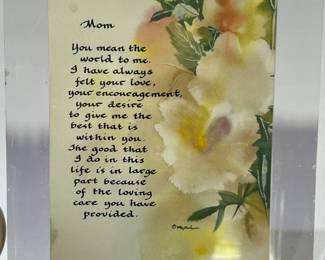 Mom
You mean the
world to me.
I have always
felt your love,
your encouragement,
your desire
to give me the
best that is
within you.
The good that
I do in this
life is in large
part because
of the loving
care you have
provided.